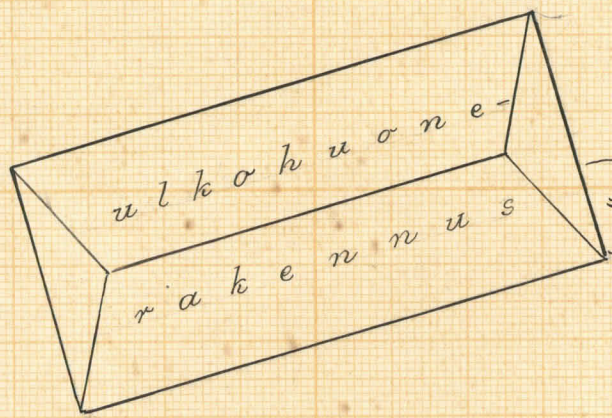 ulkohuone-
rakennus